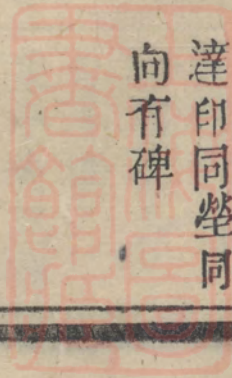 達印同塋同
向有碑